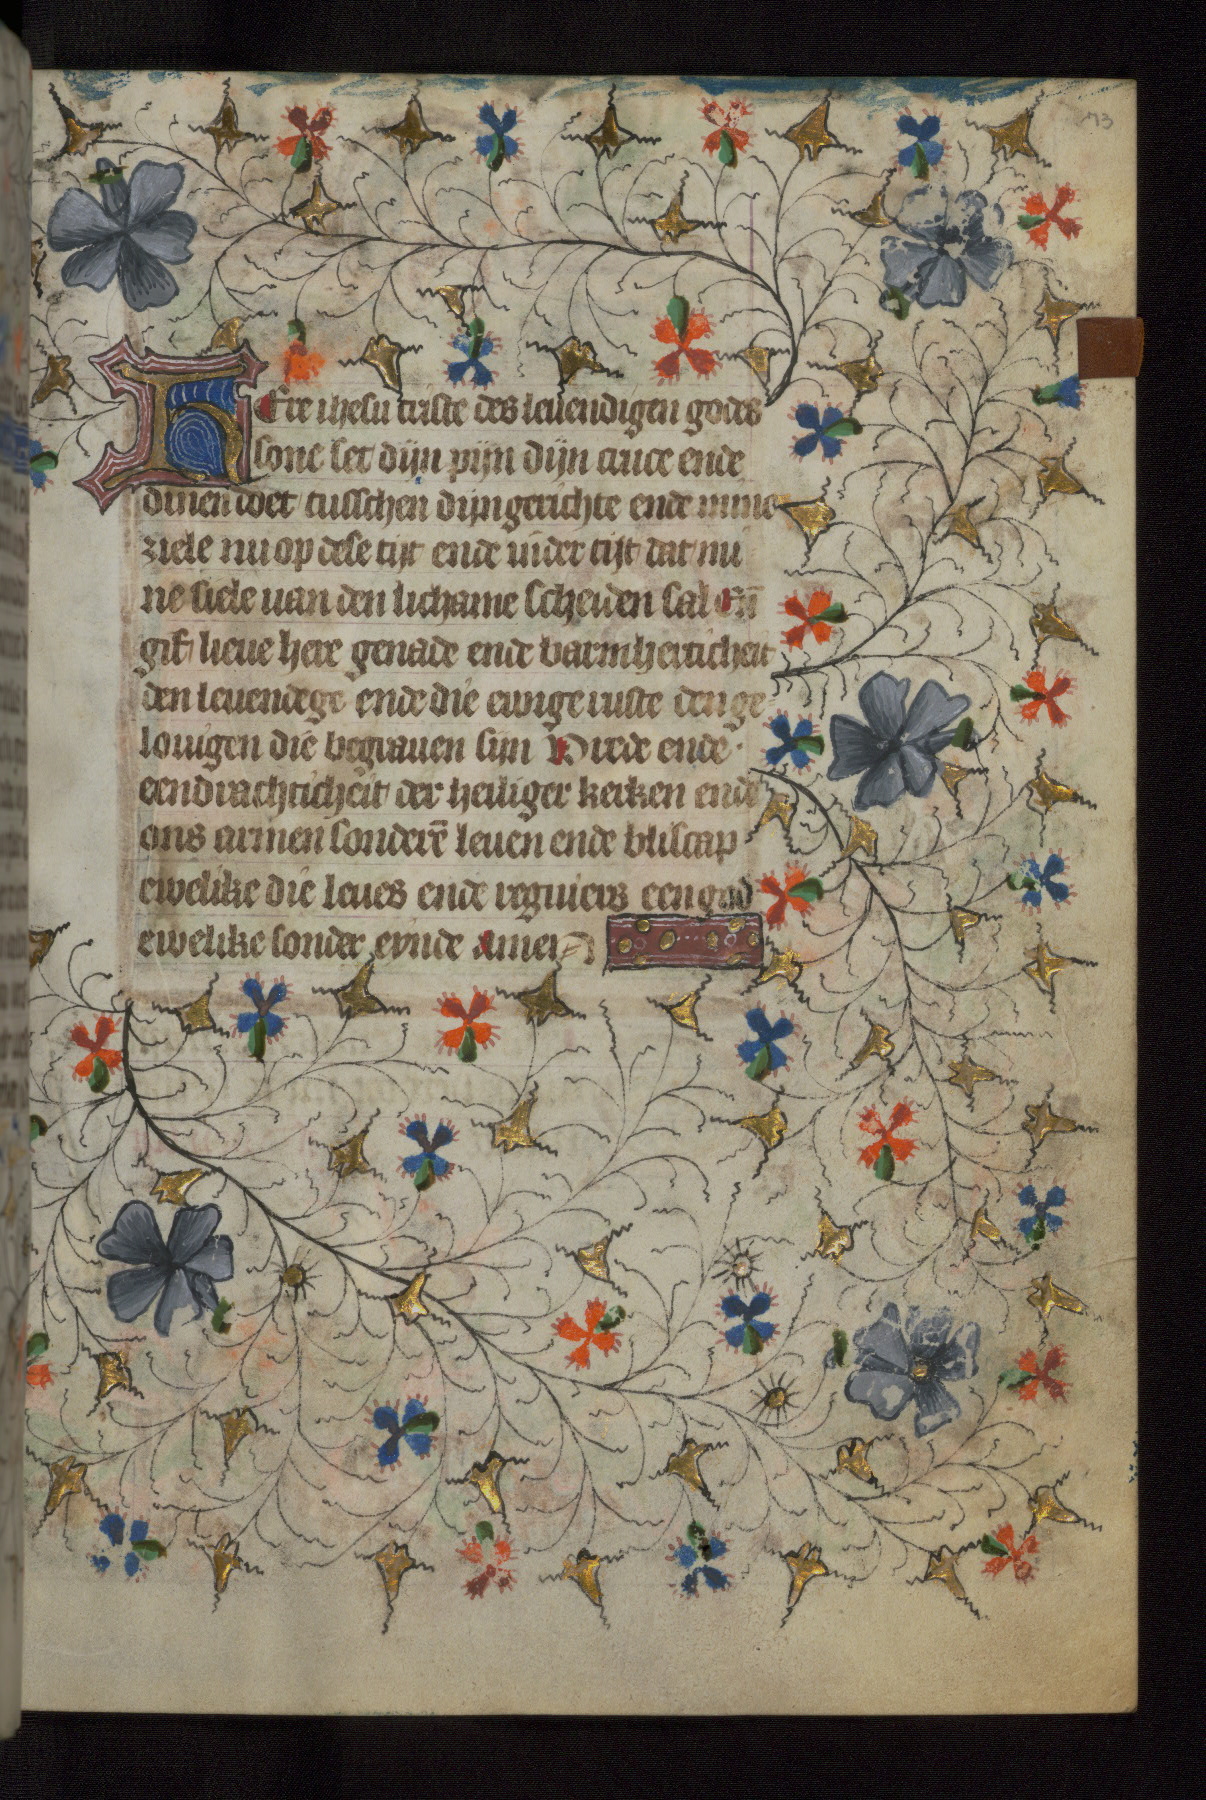 73
HEre ihesu criste des leuendigen godes
sone set dijn pijn dijn cruce ende
dinen doet tusschen dijn gerichte ende mine
ziele nu op dese tijt ende in der tijt dat mi
ne siele uan den lichame scheiden sal En̄
gif lieue here genade ende barmherticheit
den leuendege ende die ewige ruste den ge
louigen die begrauen sijn Vrede ende
eendrachticheit der heiliger kerken ende
ons armen sonderē leuen ende bliscap
ewelike die leues ende regniers een god
ewelike sonder eynde Amen